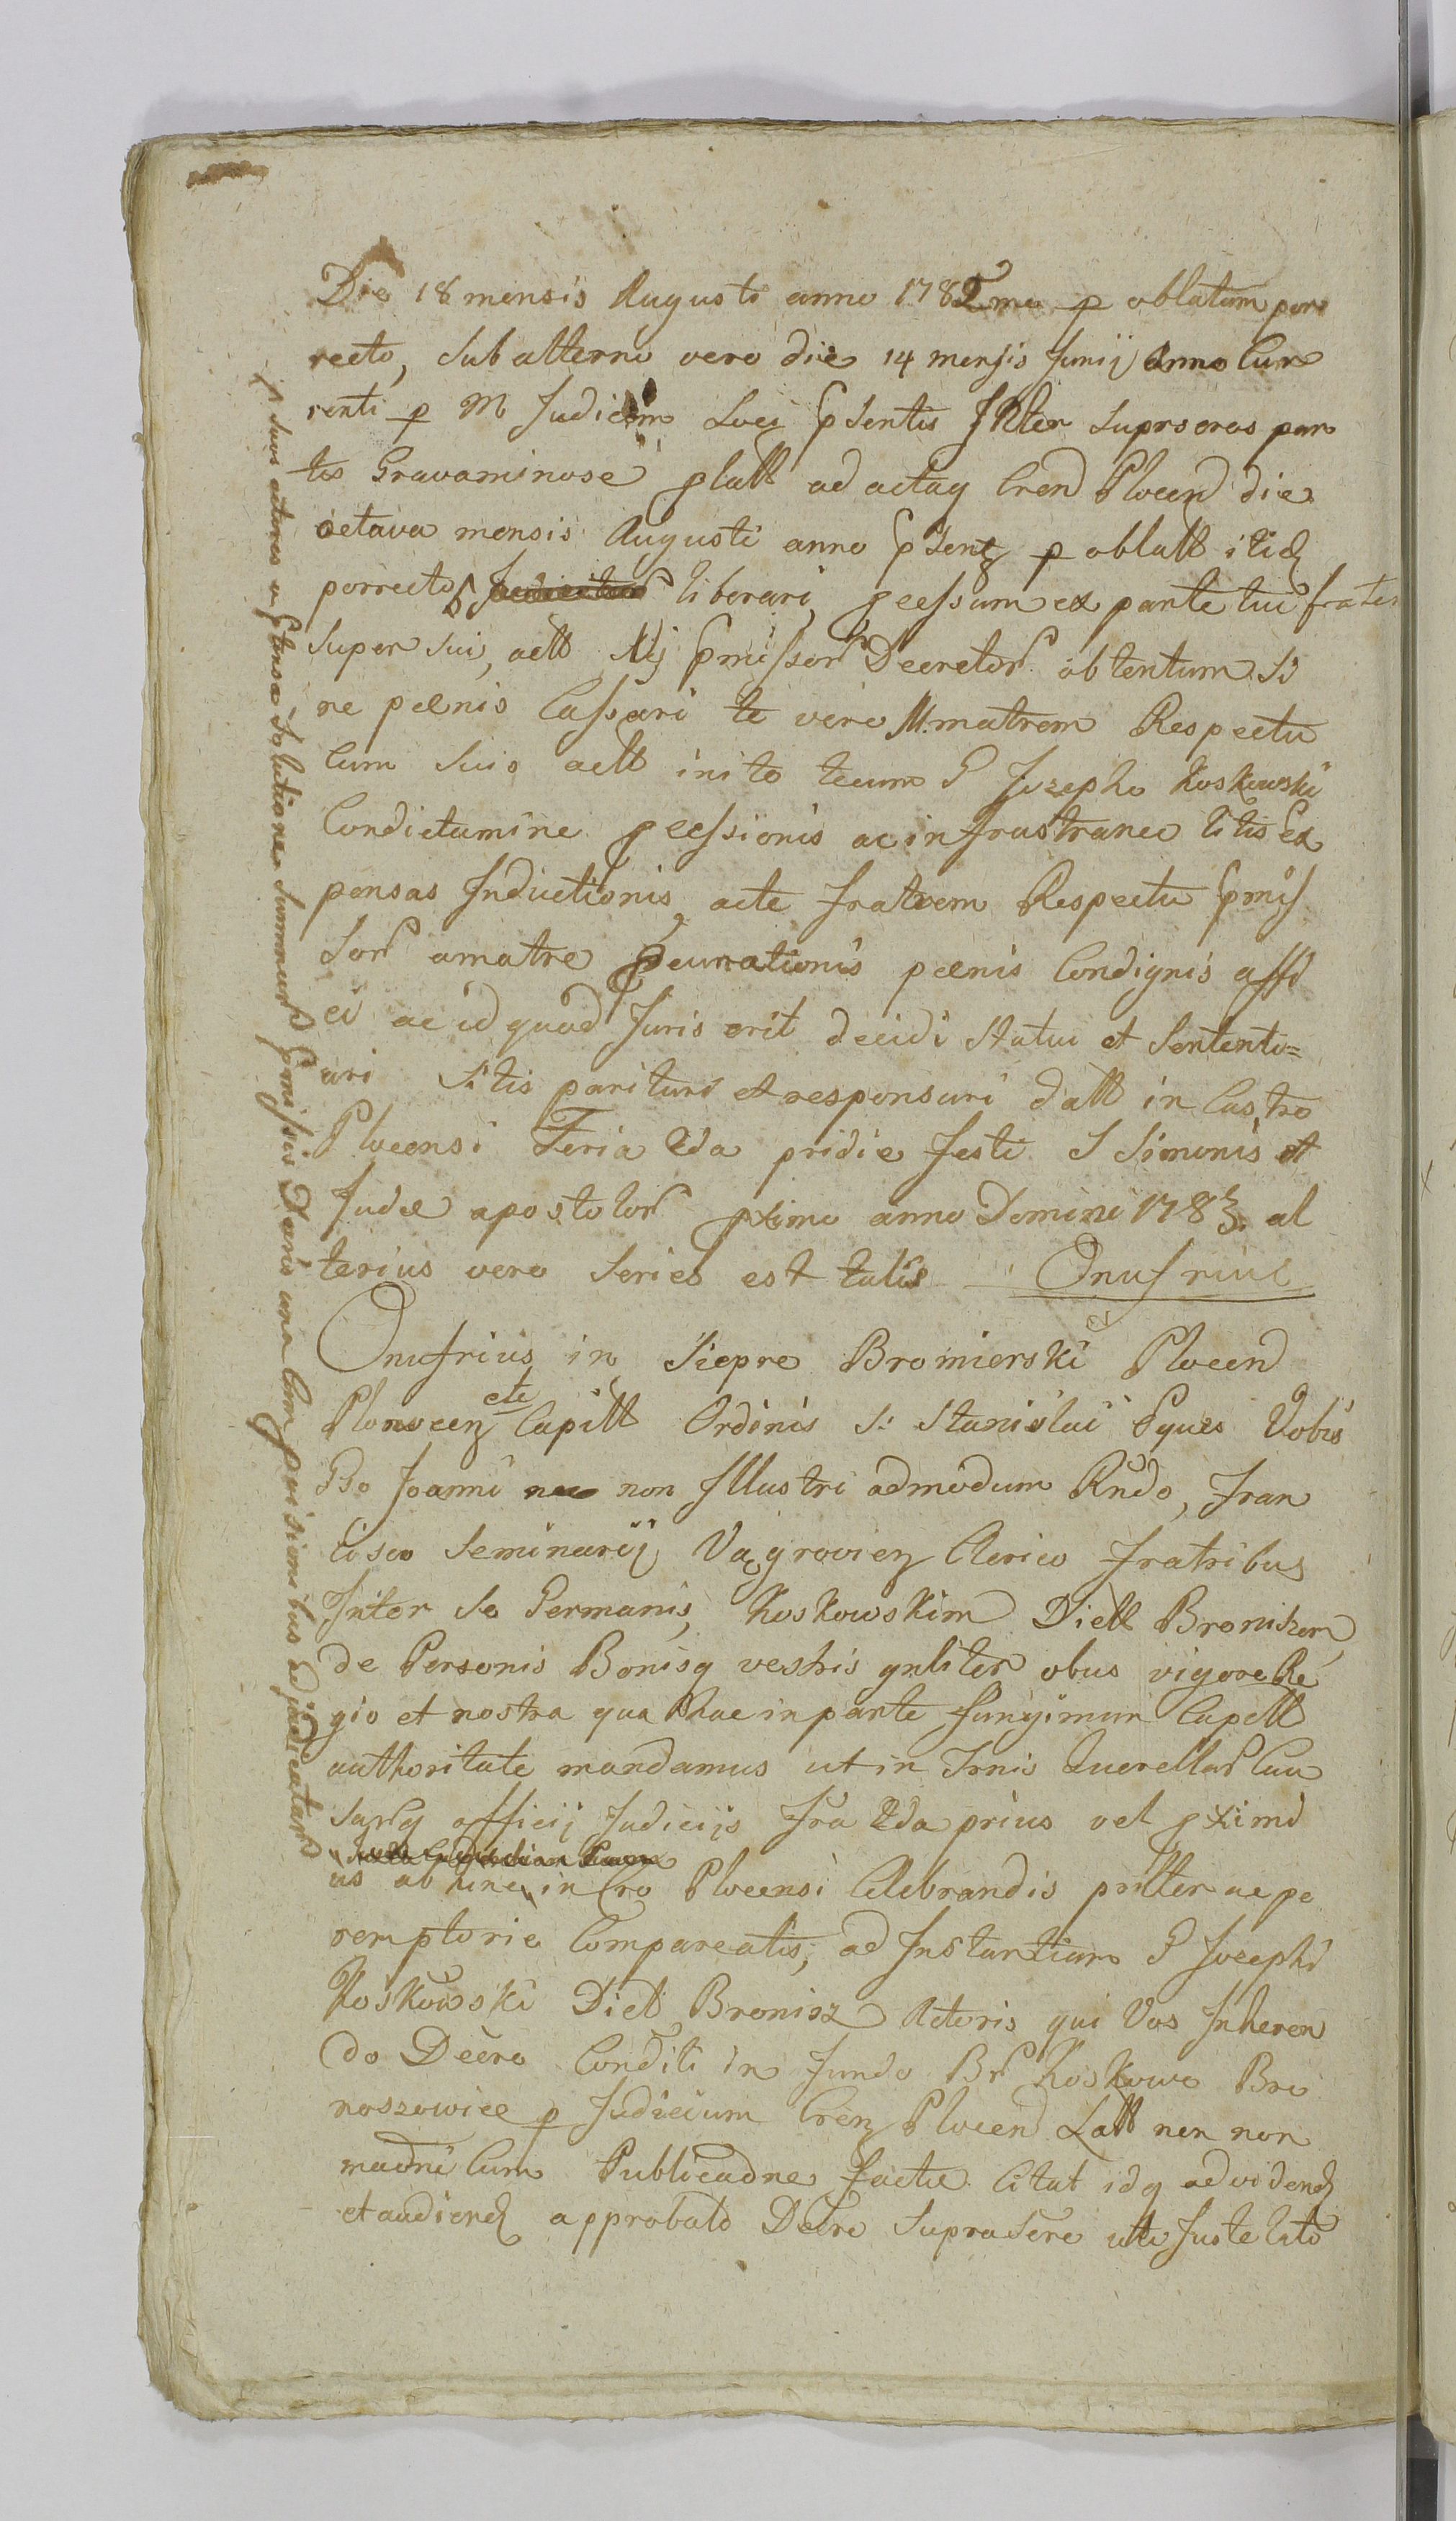 Die 18 mensis Augusti anno 1782 mo p oblatam por
recto, Sub alterno vero die 14 mensis Junij anno Cur
renti p M Judicem Loci psentis Inter Suprscras par
tes Gravaminose platt ad actaq Cren Plocen die
octava mensis Augusti anno psenz p oblatt itid
porrecto liberari, pcessum ex parte tui frater
super sui, actt premissor Decretor obtentum Si
ne pœnis Cassari te vero M. matrem Respectu
Cum suis actt inito tecum G Jozepho Koskowski
Condictamine pcessionis ac in frustraneo litis Ex
pensas Inductionis, acte fratrem Respectu pmis
sor amatre pcurationis pœnis Condignis affi
ci ac id quod Juris erit decidi statui et Sententi=
ari Sitis parituri et responsuri datt in Castro
Plocensi Feria 2da pridie festi S Simonis et
Judæ apostolor pximo anno Domini 1783. al
terius vero Series est talis — Onufrius
Onufrius in Siepre Bromierski Plocen
Plonscen etc Capitt Ordinis S: Stanislai Eques Vobis
Gso Joanni nec non Illustri admodum Rndo, Fran
cisco Seminarij Vągrovien Clerico fratribus
Inter Se Germanis, Koskowskim Dictt Broniszom
de Personis Bonisq vestris gnliter obus vigore Re
gio et nostra qua hac in parte fungimur Capttl
authoritate mandamus ut in Trnis Querellar Cau
sarq officij Judicijs Fra 2da prius vel pximi
us ab hinc in Cro Plocensi Celebrandis pntter ac pe
remptorie Compareatis, ad Instantiam G Jozephi
Koskowski Dict Bronisz Actoris qui Vos Inheren
do Decro Conditi in fundo Br Koskowo Bro
noszowice p Judicium Cren Plocen Latt nec non
madni Cum Publicadne factæ Citat idq ad vidend
et audiend approbato Decre Suprascre uti Juste lato
suos actores a solutione summar pmissis Decris una Cum pœisionibus adjudicatar